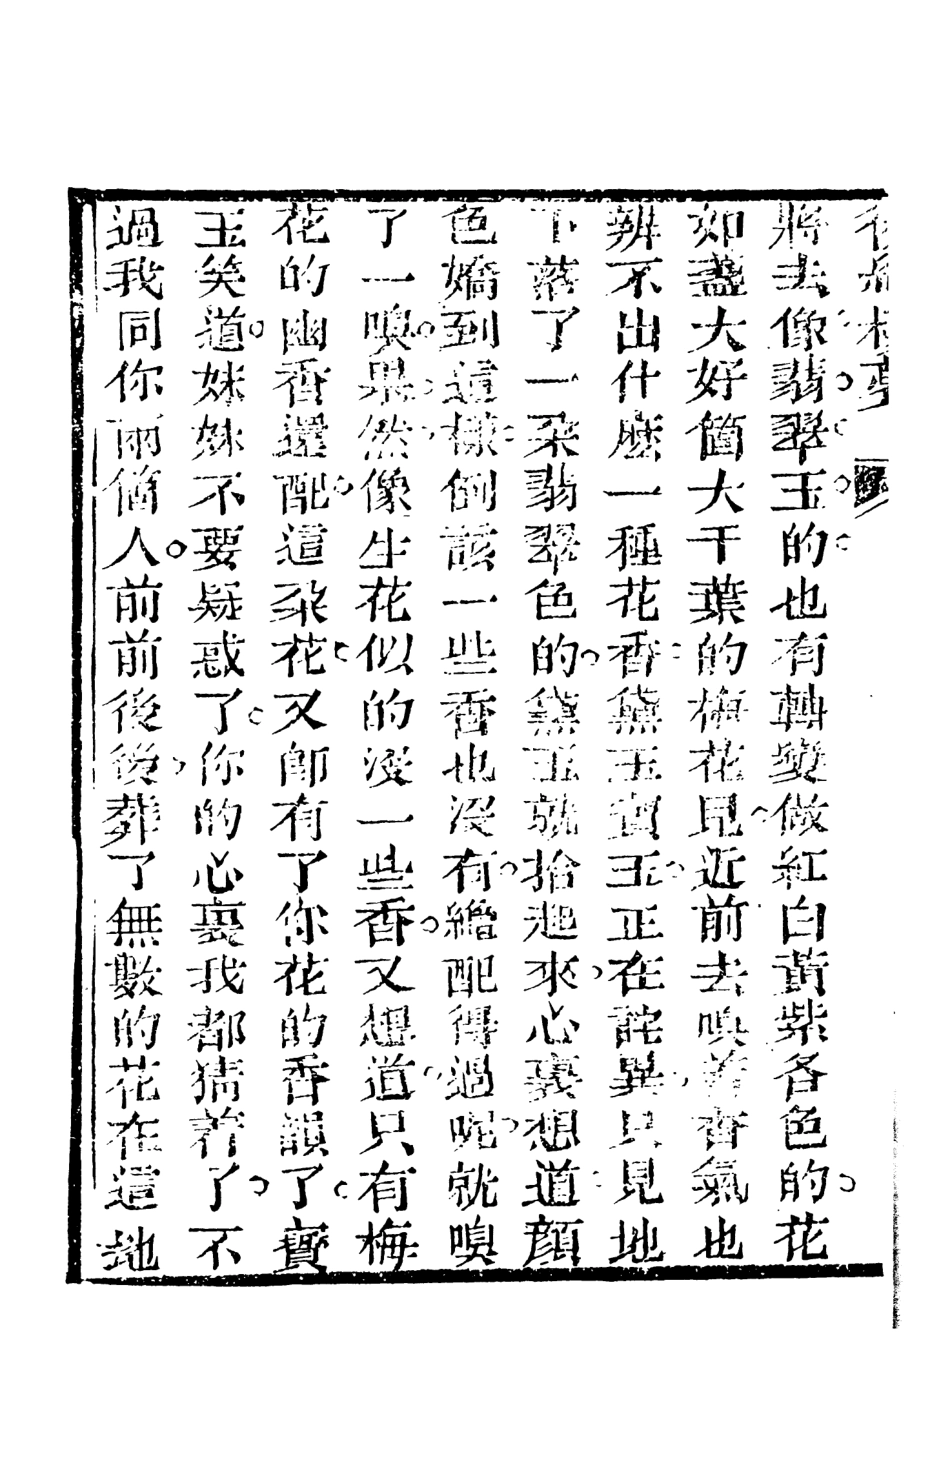 將去像翡翠玉的也有轉變做紅白黃紫各色的花
如盞大好箇大千葉的梅花見近前去嗅着香氣也
辨不出什麼一種花香黛玉寶玉正在詫異只見地
下落了一朶翡翠色的黛玉就拾起來心裏想道顏
色嬌到這樣倒該一些香也沒有纔配得過呢就嗅
了一嗅果然像生花似的沒一些香又想道只有梅
花的幽香還配這朶花又卽有了你花的香韻了寶
玉笑道妹妹不要疑惑了你的心裏我都猜着了不
過我同你兩箇人前前後後葬了無數的花在這地